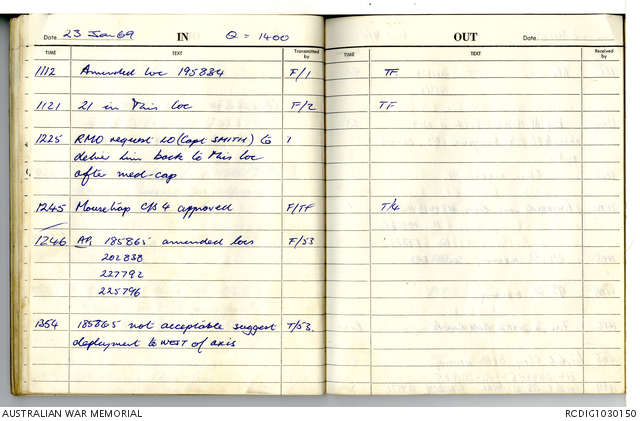 Date 23 Jan 69 IN Q = 1400
TIME TEXT Transmitted by
1112 Amended loc 195884 F/1
1121 21 in this loc F/2
1225 RMO request LO (Capt SMITH) to 1
deliver him back to this loc
after med-cap
1245 Mousetrap C/S 4 approved F/TF
1246 AP, 185865 amended locs F/53
202838
227792
225796
1354 185865 not acceptable suggest T/53.
deployment to WEST of axis
OUT Date
TIME TEXT Received by
TF
TF
T/4
AUSTRALIAN WAR MEMORIAL RCDIG1030150